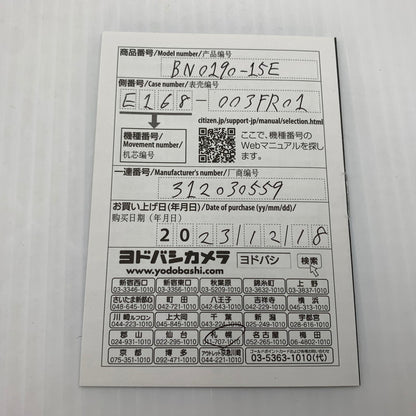 商品番号/Model number/产品编号
BN0190-15E
側番号/Case number/表壳编号
E168-003FR01
citizen.jp/support-jp/manual/selection.html
機種番号/
Movement number/
机芯编号
ここで、機種番号の
Webマニュアルを探し
ます。
一連番号/Manufacturer's number/厂商编号
312030559
お買い上げ日(年月日)/Date of purchase (yy/mm/dd)/
购买日期(年月日)
2023/12/18
ヨドバシカメラ
www.yodobashi.com
ヨドバシ 検索
新宿西口 新宿東口 秋葉原 錦糸町 上野
03-3346-1010 03-3356-1010 03-5209-1010 03-3632-1010 03-3837-1010
さいたま新都心 町田 八王子 吉祥寺 横浜
048-645-1010 042-721-1010 042-643-1010 0422-29-1010 045-313-1010
川崎ルフロン 上大岡 千葉 新潟 宇都宮
044-223-1010 045-845-1010 043-224-1010 025-249-1010 028-616-1010
郡山 仙台 札幌 名古屋 梅田
024-931-1010 022-295-1010 011-707-1010 052-265-1010 06-4802-1010
京都 博多 アウトレット京急川崎
075-351-1010 092-471-1010 044-221-1010
ゴールドポイントカードおよび会員情報に関するお問い合わせ
03-5363-1010(代)